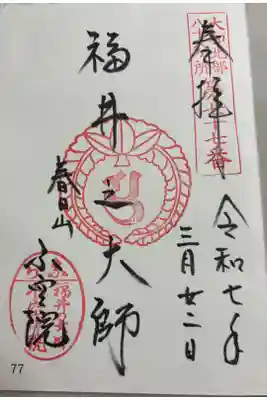 奉拝
令和七年
三月廿二日
福井之大師
春日山
不空院
77